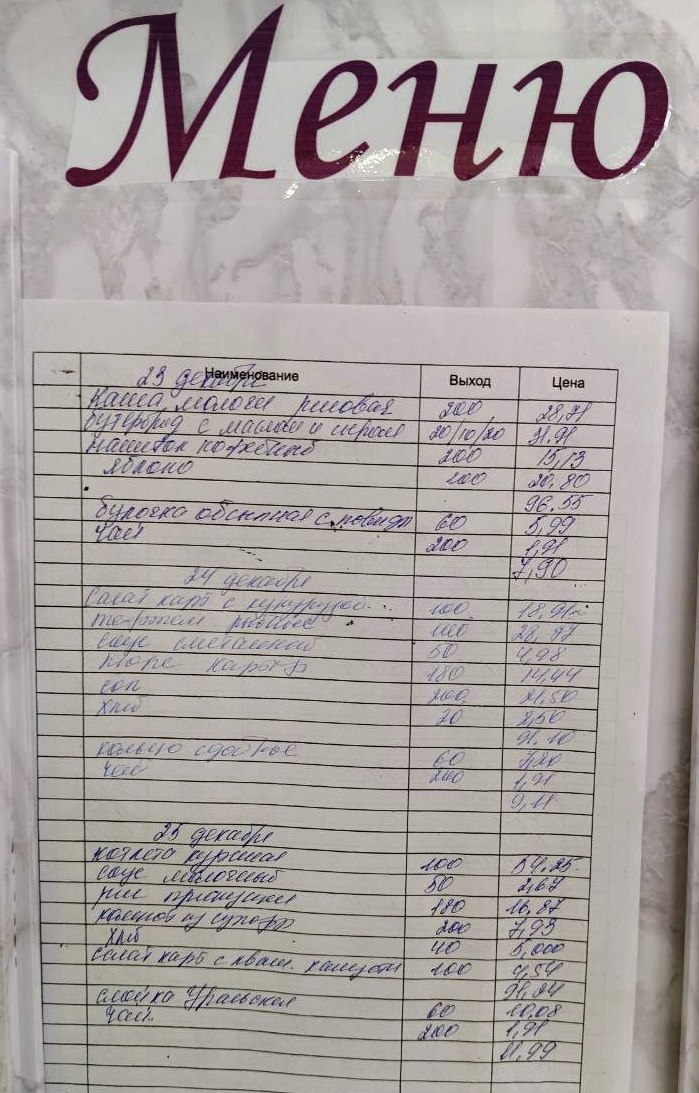 Меню
Наименование Выход Цена
23 декабря
Каша молочн рисовая 200 28,71
бутерброд с маслом и сыром 20/10/20 31.91
напиток кофейный 200 15,13
яблоко 100 20,80
96.55
булочка обсыпная с повидл 60 5,99
чай 200 1,91
7,90
24 декабря
Салат карт с кукурузой 100 18,91
100
соус сметанный 50 4,98
пюре картоф 180 14,44
сок 200 21,50
хлеб 20 2,50
91.10
кольцо сдобное 60 7,20
чай 200 1,91
9,11
25 декабря
котлета куриная 100 54,25
соус молочный 50 2,67
рис припущен 180 16,87
компот из сухофр 200 7,93
хлеб 40 5,000
салат карт с кваш. капустой 100 4,54
91,24
слойка Уральская 60 10,08
чай 200 1,91
11,99